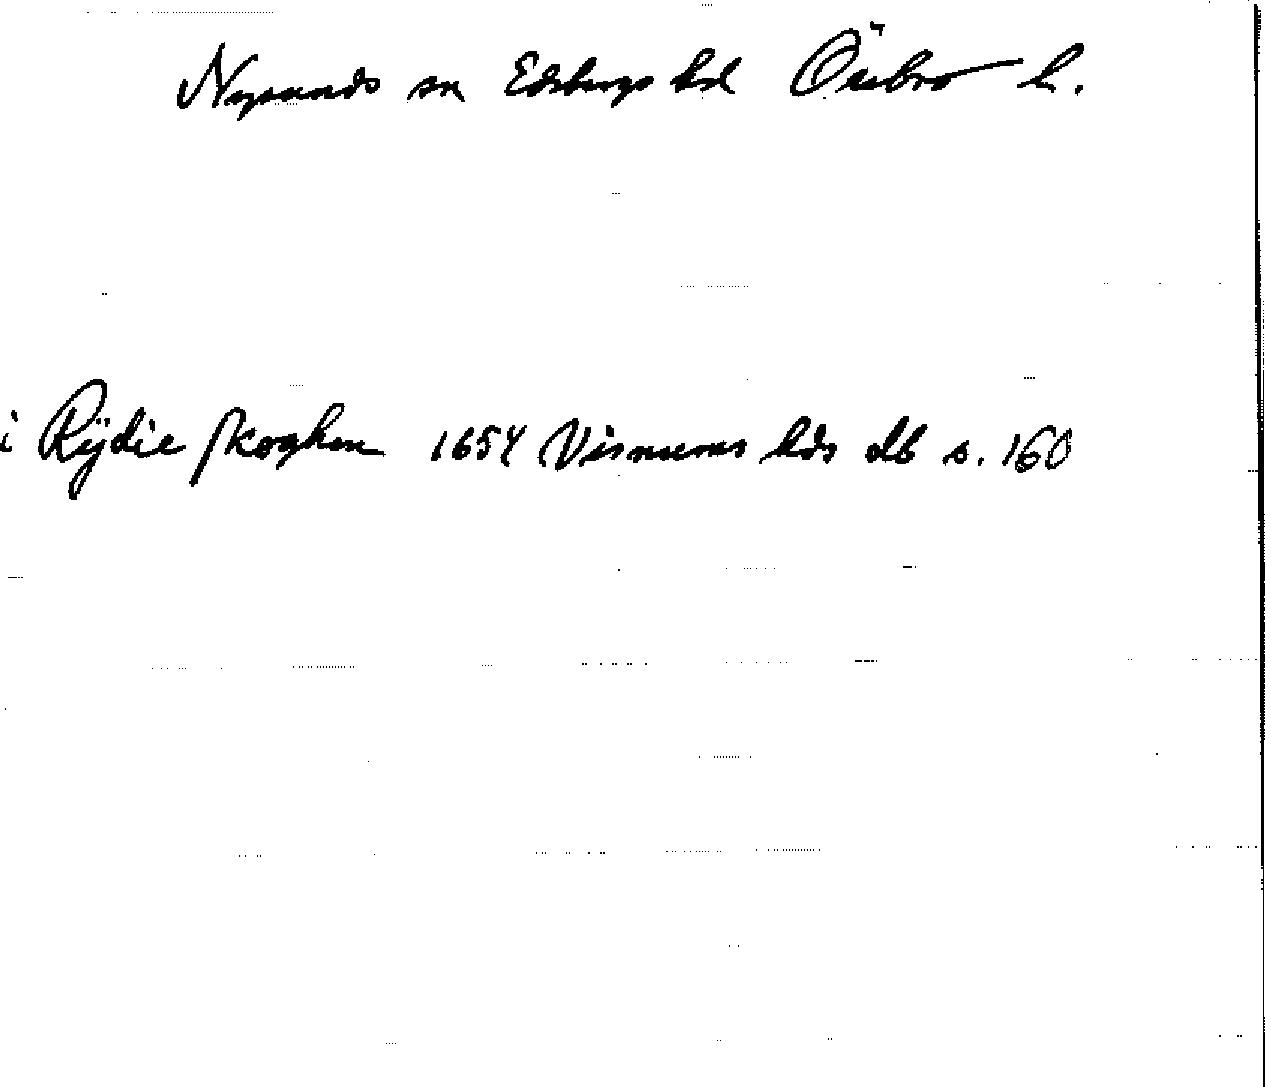 Nysunds sn Edsbergs hd Örebro l.
i Rÿdie skoghen 1654 Visnums hds db s. 160